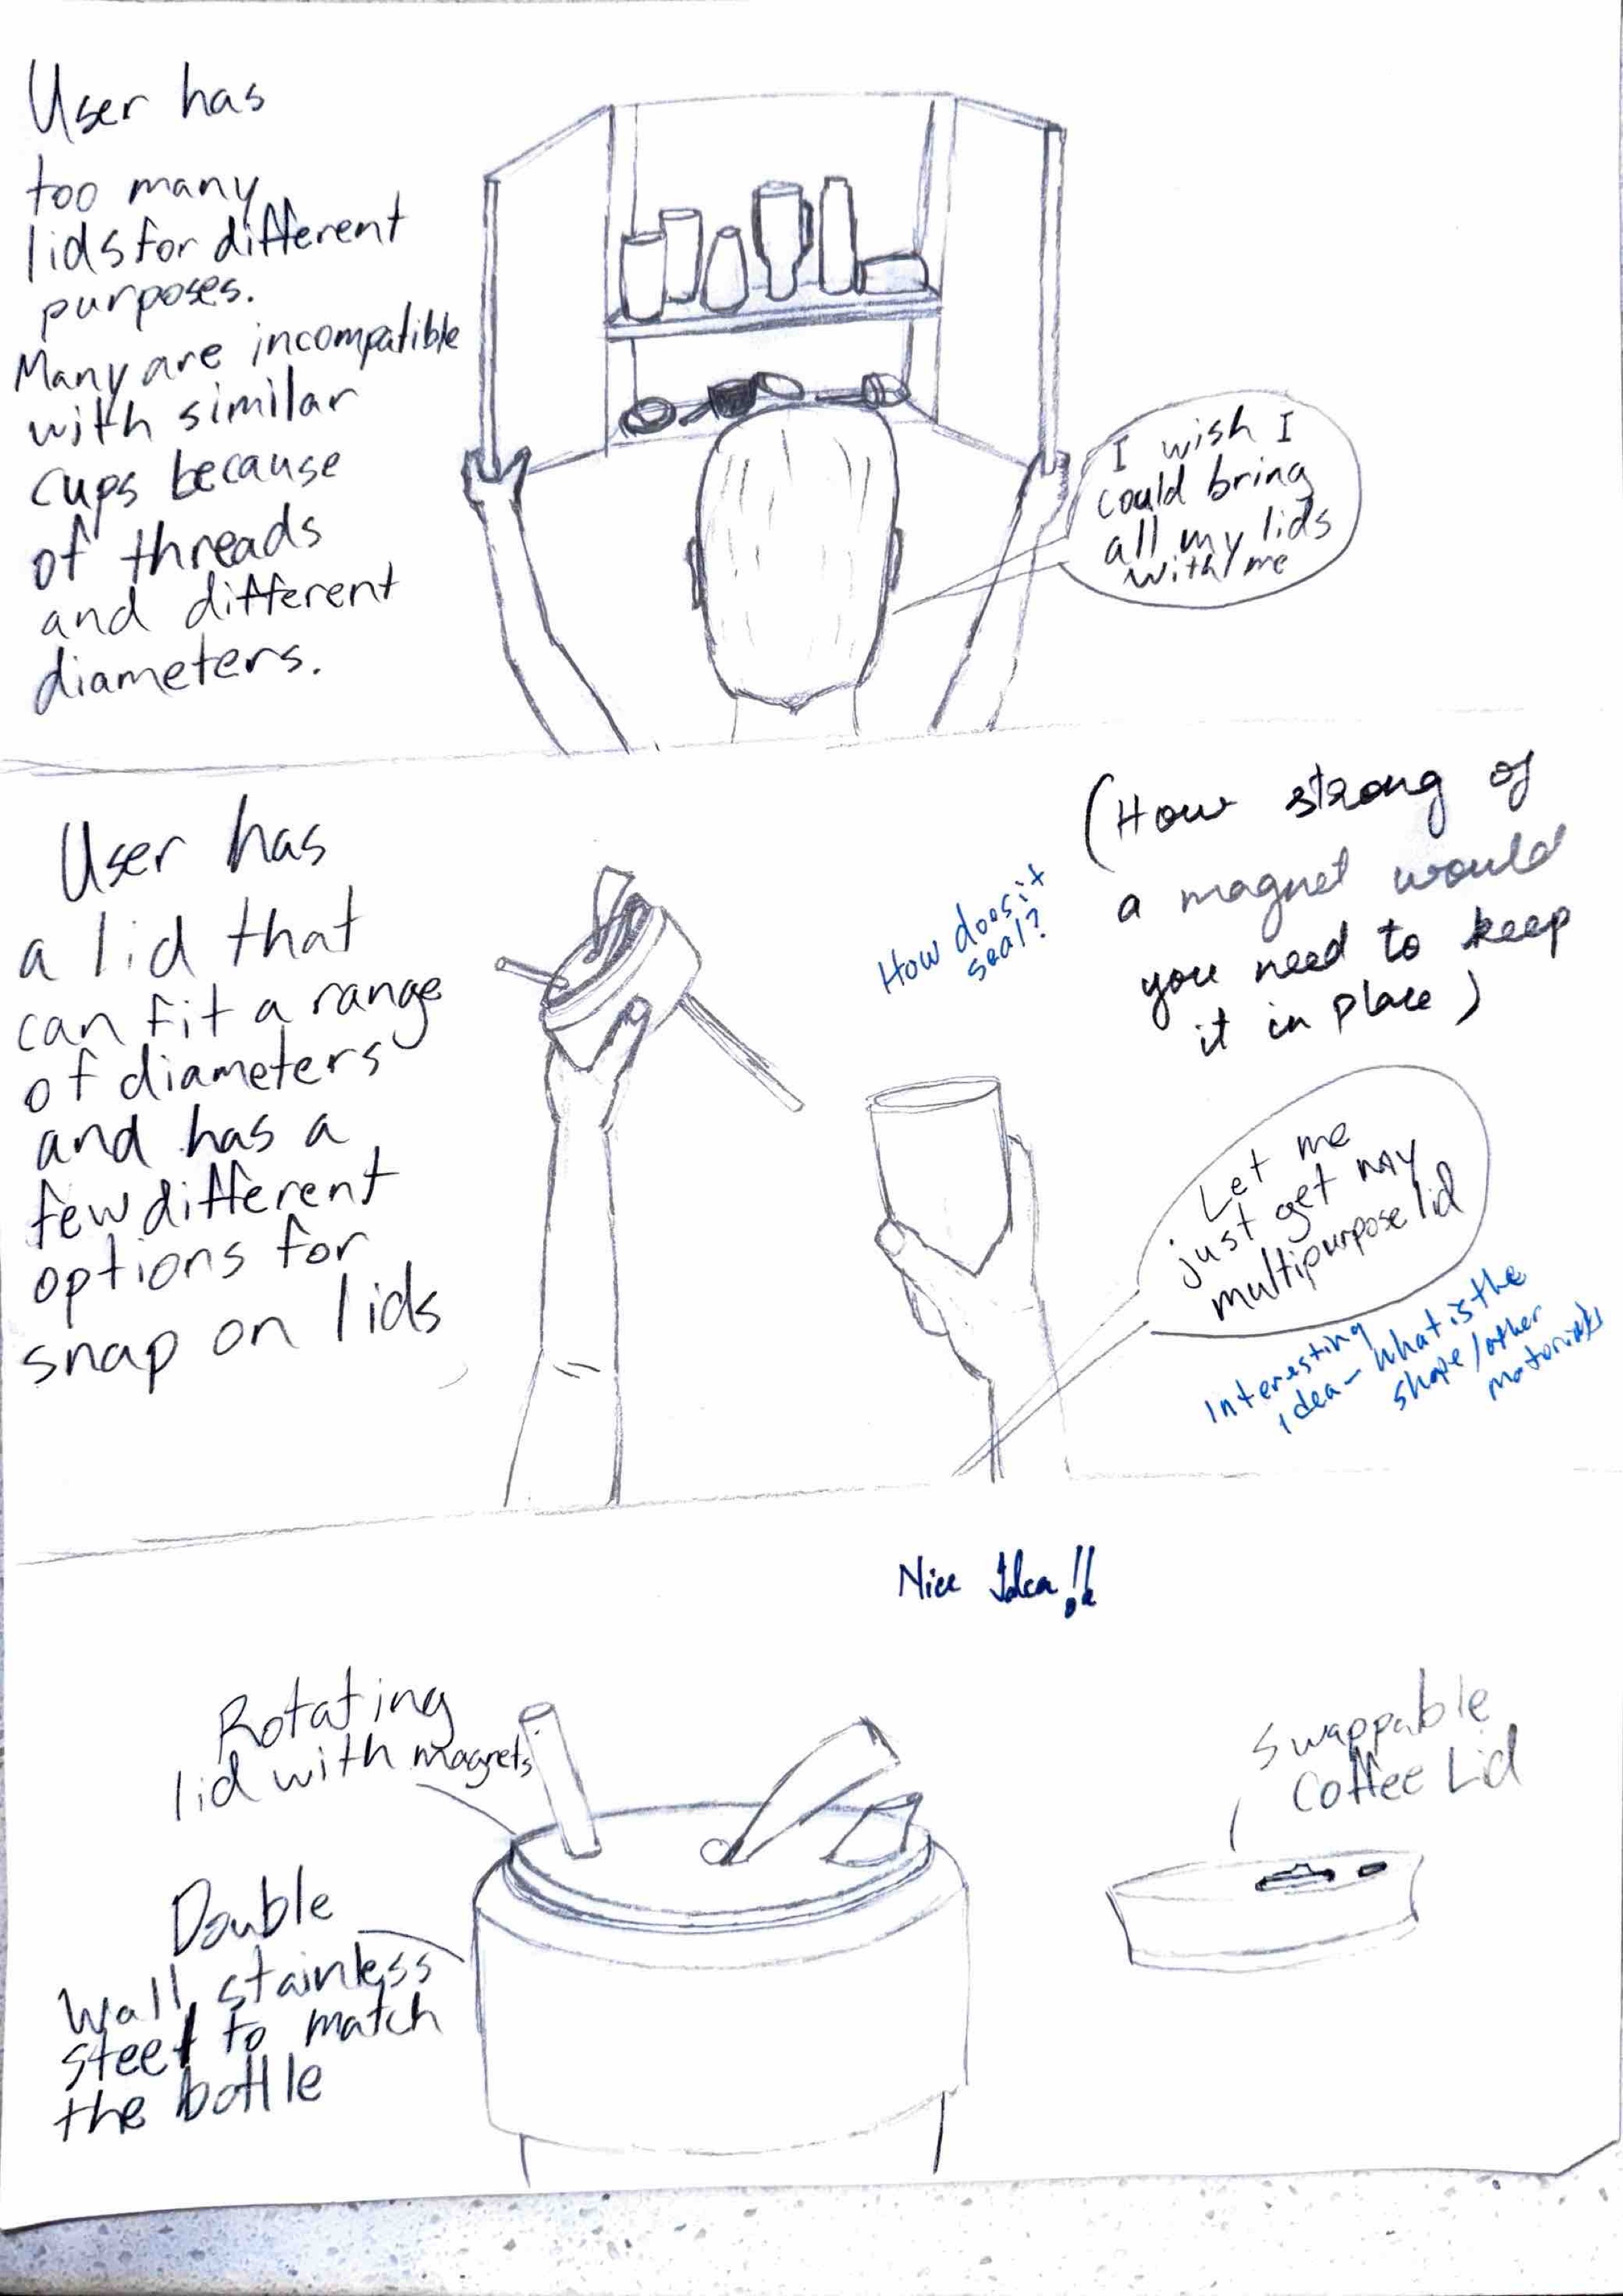 User has
too many
lids for different
purposes.
Many are incompatible
with similar
cups because
of threads
and different
diameters.
I wish I
could bring
all my lids
with me
User has
a lid that
can fit a range
of diameters
and has a
few different
options for
snap on lids
How does it
seal?
(How strong of
a magnet would
you need to keep
it in place)
Let me
just get my
multipurpose lid
Interesting
idea - what is the
shape/other
materials
Nice Idea!!
Rotating
lid with magnets
Double
wall, stainless
steel to match
the bottle
Swappable
Coffee Lid